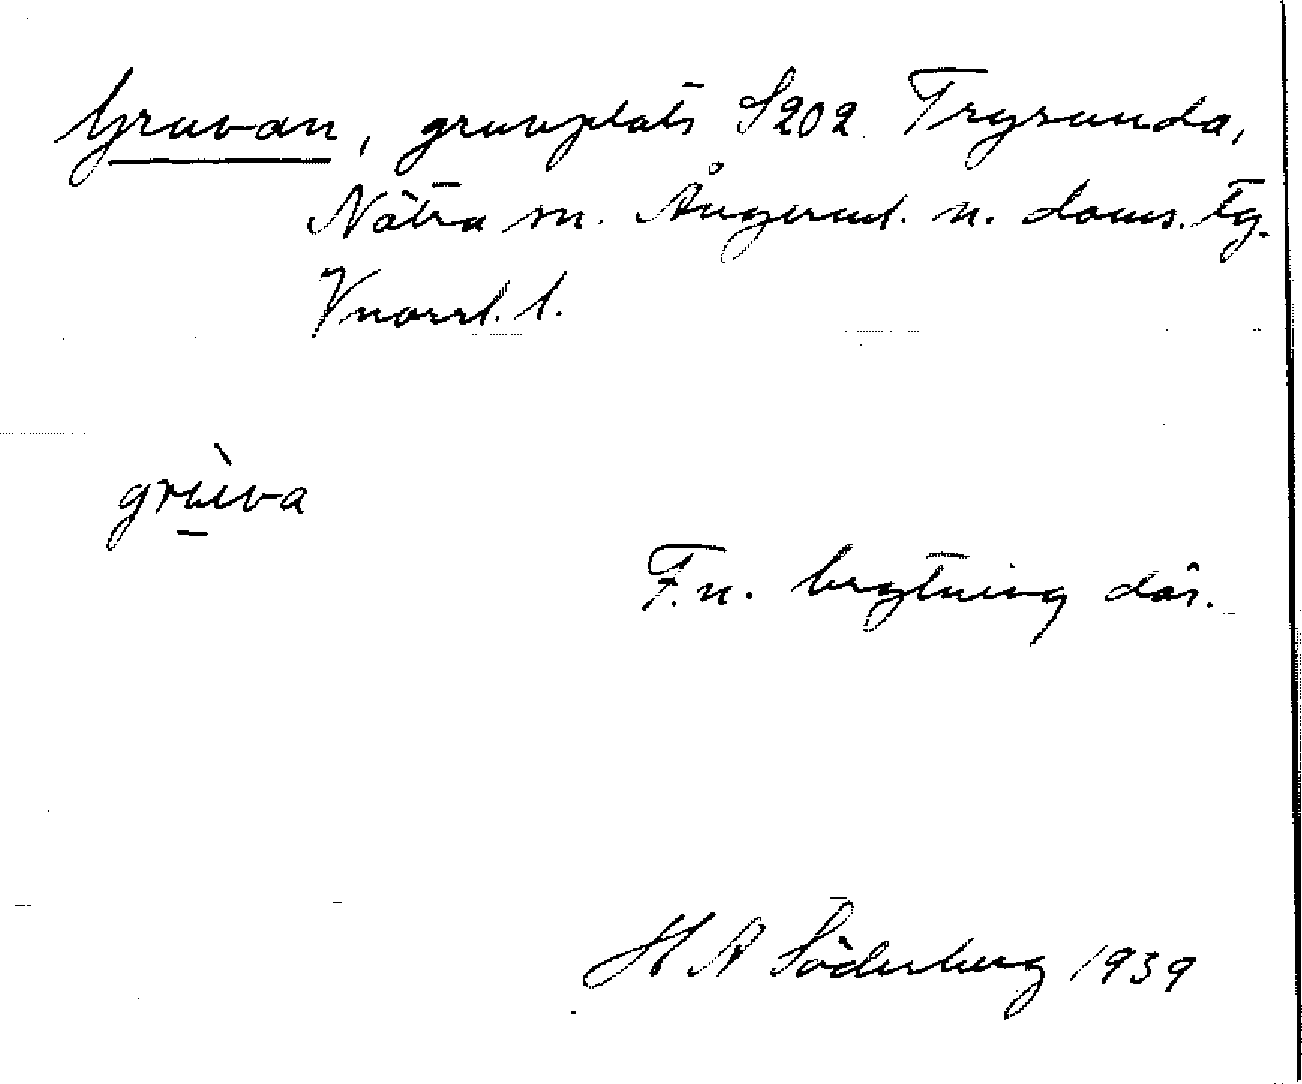 Gruvan, gruvplats S202. Trysunda,
Nätra sn. Ångerml. n. doms. tg.
Vnorrl. l.
grùva
F.n. brytning där.
H A Söderberg 1939